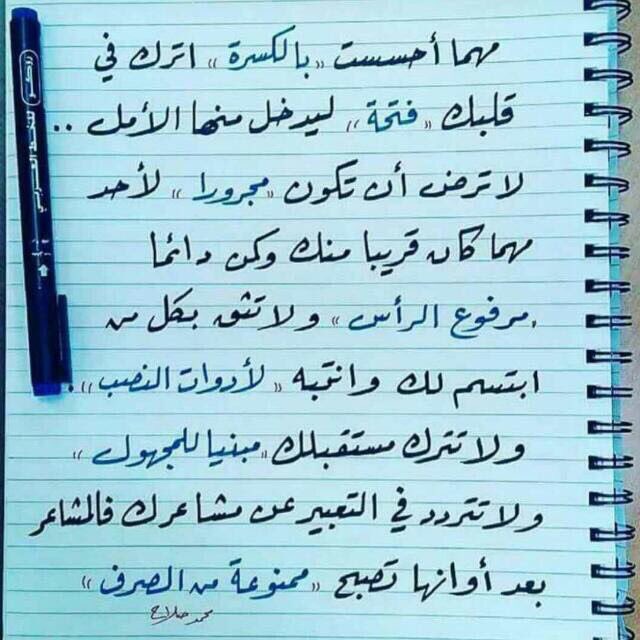 مهما أحسست «بالكسرة» اترك في
قلبك «فتحة» ليدخل منها الأمل ..
لا ترض أن تكون «مجرورا» لأحد
مهما كان قريبا منك وكن دائما
«مرفوع الرأس» ولا تثق بكل من
ابتسم لك وانتبه «لأدوات النصب».
ولا تترك مستقبلك «مبنيا للمجهول»
ولا تتردد في التعبير عن مشاعرك فالمشاعر
بعد أوانها تصبح «ممنوعة من الصرف»
محمد صلاح